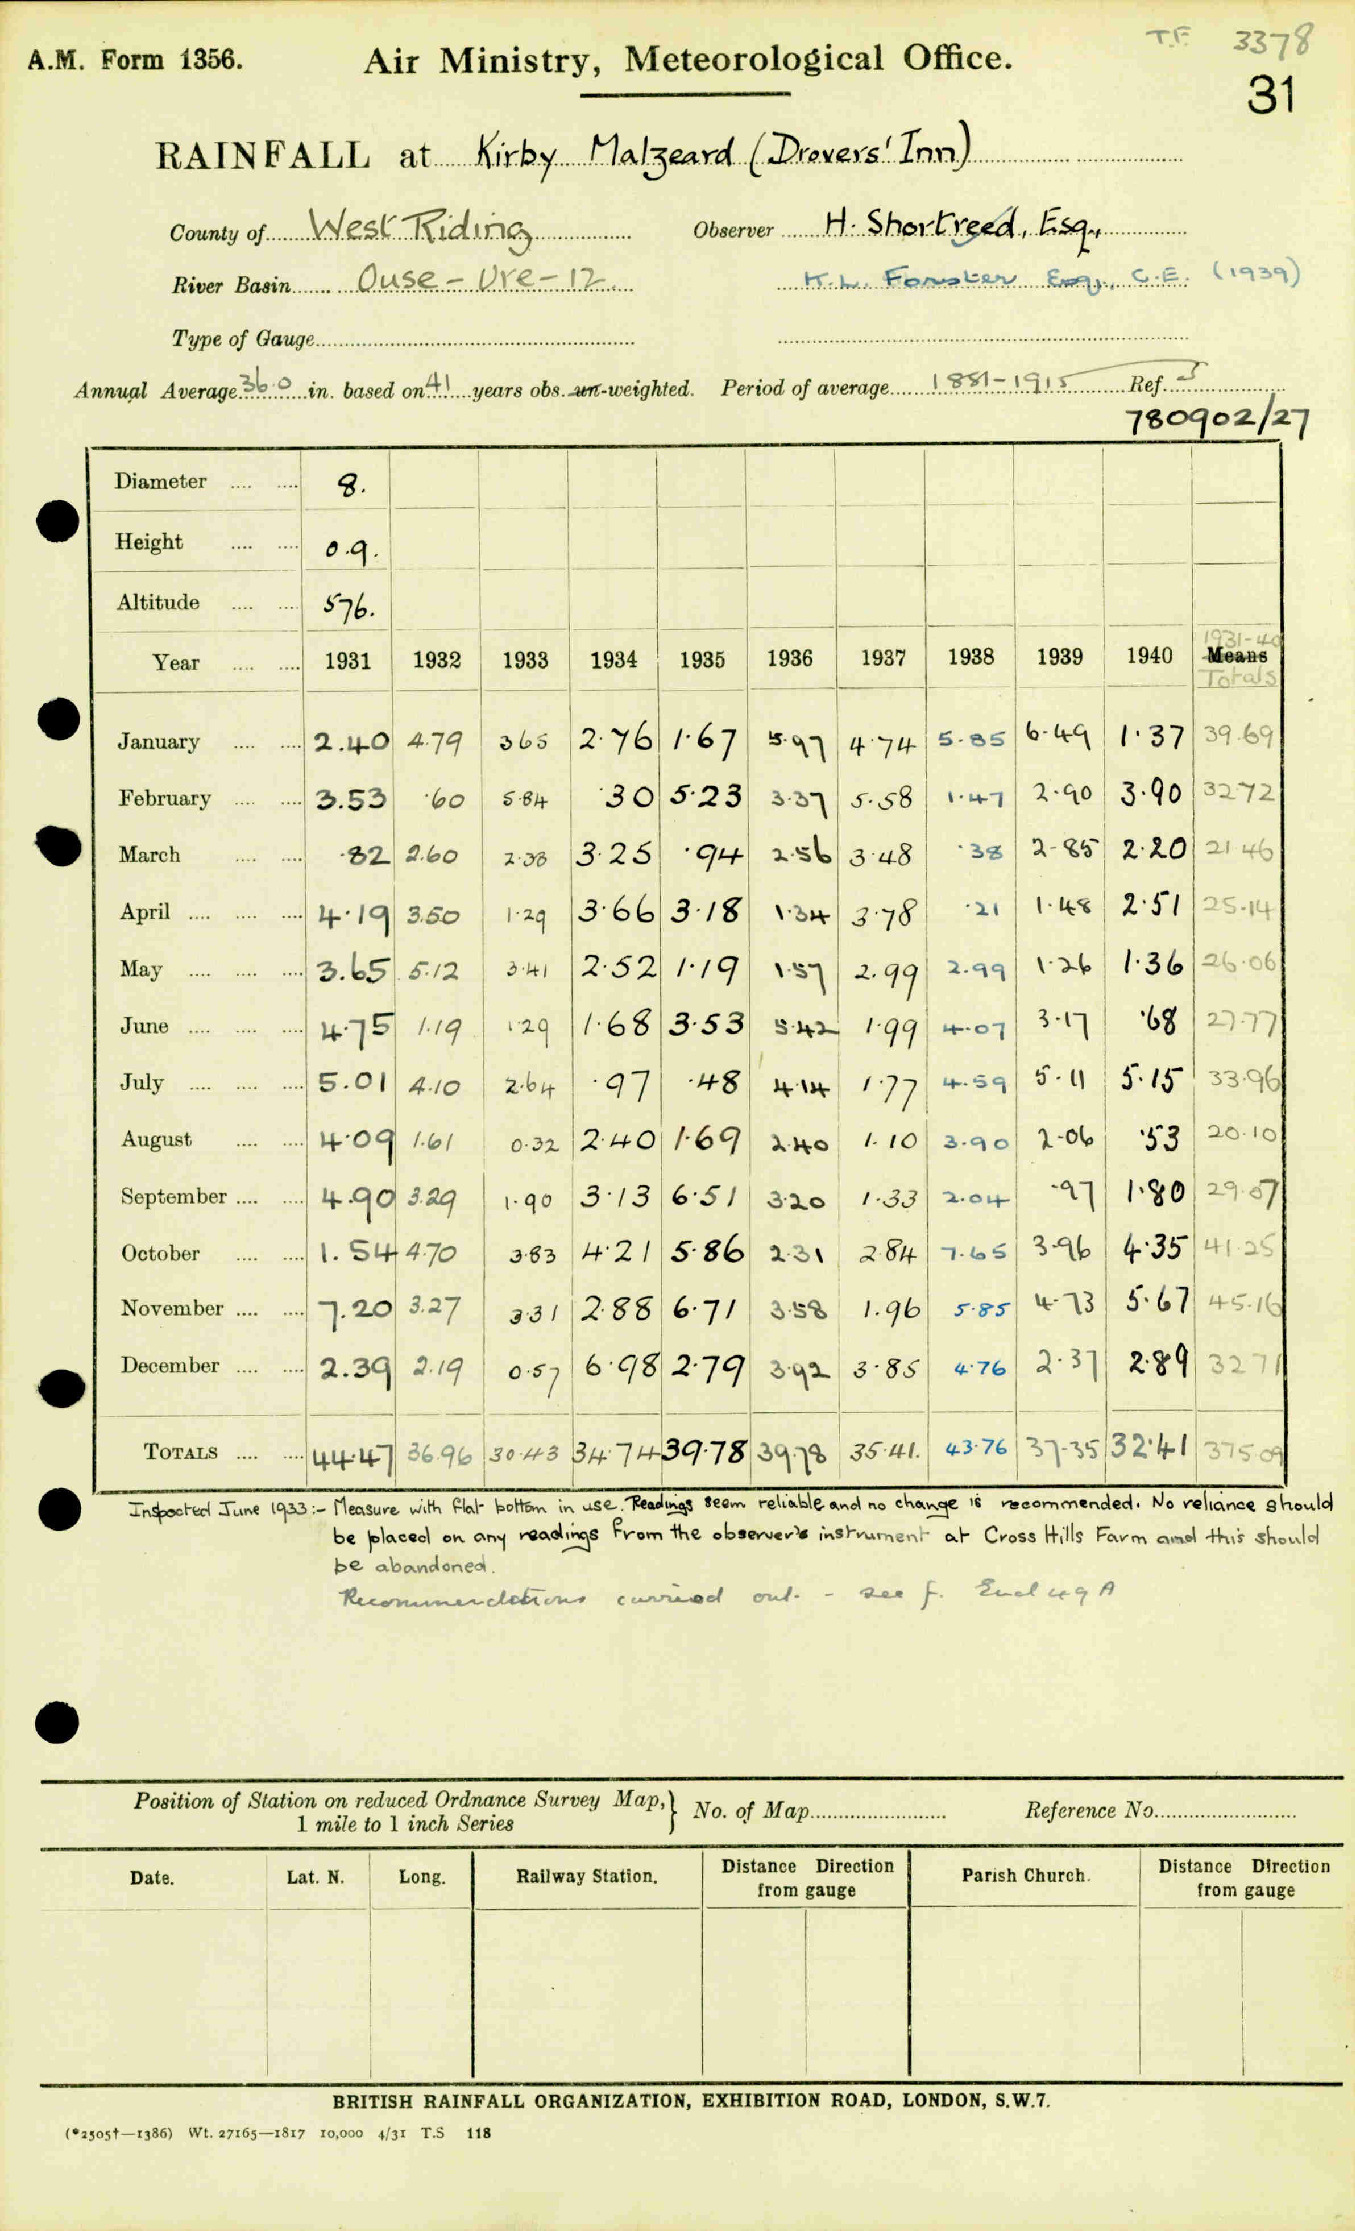 T.F. 3378
31
A.M. Form 1356. Air Ministry, Meteorological Office.
RAINFALL at Kirby Malzeard (Drovers' Inn)
County of West Riding Observer H. Shortreed, Esq.,
River Basin Ouse – Ure – 12. K.L. Forster Esq., C.E. (1939)
Type of Gauge
Annual Average 36.0 in. based on 41 years obs. un-weighted. Period of average 1881–1915 Ref. 5
780902/27
Diameter 8.
Height 0.9.
Altitude 576.
Year 1931 1932 1933 1934 1935 1936 1937 1938 1939 1940 1931-40 Means Totals
January 2.40 4.79 3 65 2.76 1.67 5.97 4.74 5.85 6.49 1.37 39.69
February 3.53 .60 5.84 .30 5.23 3.37 5.58 1.47 2.90 3.90 32 72
March .82 2.60 2.38 3.25 .94 2.56 3.48 .38 2.85 2.20 21 46
April 4.19 3.50 1.29 3.66 3.18 1.34 3.78 .21 1.48 2.51 25.14
May 3.65 5.12 3.41 2.52 1.19 1.57 2.99 2.99 1.26 1.36 26.06
June 4.75 1.19 1.29 1.68 3.53 5.42 1.99 4.07 3.17 .68 27.77
July 5.01 4.10 2.64 .97 .48 4.14 1.77 4.59 5.11 5.15 33.96
August 4.09 1.61 0.32 2.40 1.69 2.40 1.10 3.90 2.06 .53 20.10
September 4.90 3.29 1.90 3.13 6.51 3.20 1.33 2.04 .97 1.80 29.07
October 1.54 4.70 3.83 4.21 5.86 2.31 2.84 7.65 3.96 4.35 41.25
November 7.20 3.27 3.31 2.88 6.71 3.58 1.96 5.85 4.73 5.67 45.16
December 2.39 2.19 0.57 6.98 2.79 3.92 3.85 4.76 2.37 2.89 32 71
TOTALS 44.47 36.96 30.43 34.74 39.78 39.78 35.41. 43.76 37.35 32.41 375.09
Inspected June 1933:– Measure with flat bottom in use. Readings seem reliable and no change is recommended. No reliance should
be placed on any readings from the observer's instrument at Cross Hills Farm and this should
be abandoned.
Recommendations carried out. – see f. Encl 49 A
Position of Station on reduced Ordnance Survey Map, 1 mile to 1 inch Series } No. of Map Reference No.
Date. Lat. N. Long. Railway Station. Distance Direction from gauge Parish Church. Distance Direction from gauge
BRITISH RAINFALL ORGANIZATION, EXHIBITION ROAD, LONDON, S.W.7.
(*2505†—1386) Wt. 27165—1817 10,000 4/31 T.S 118